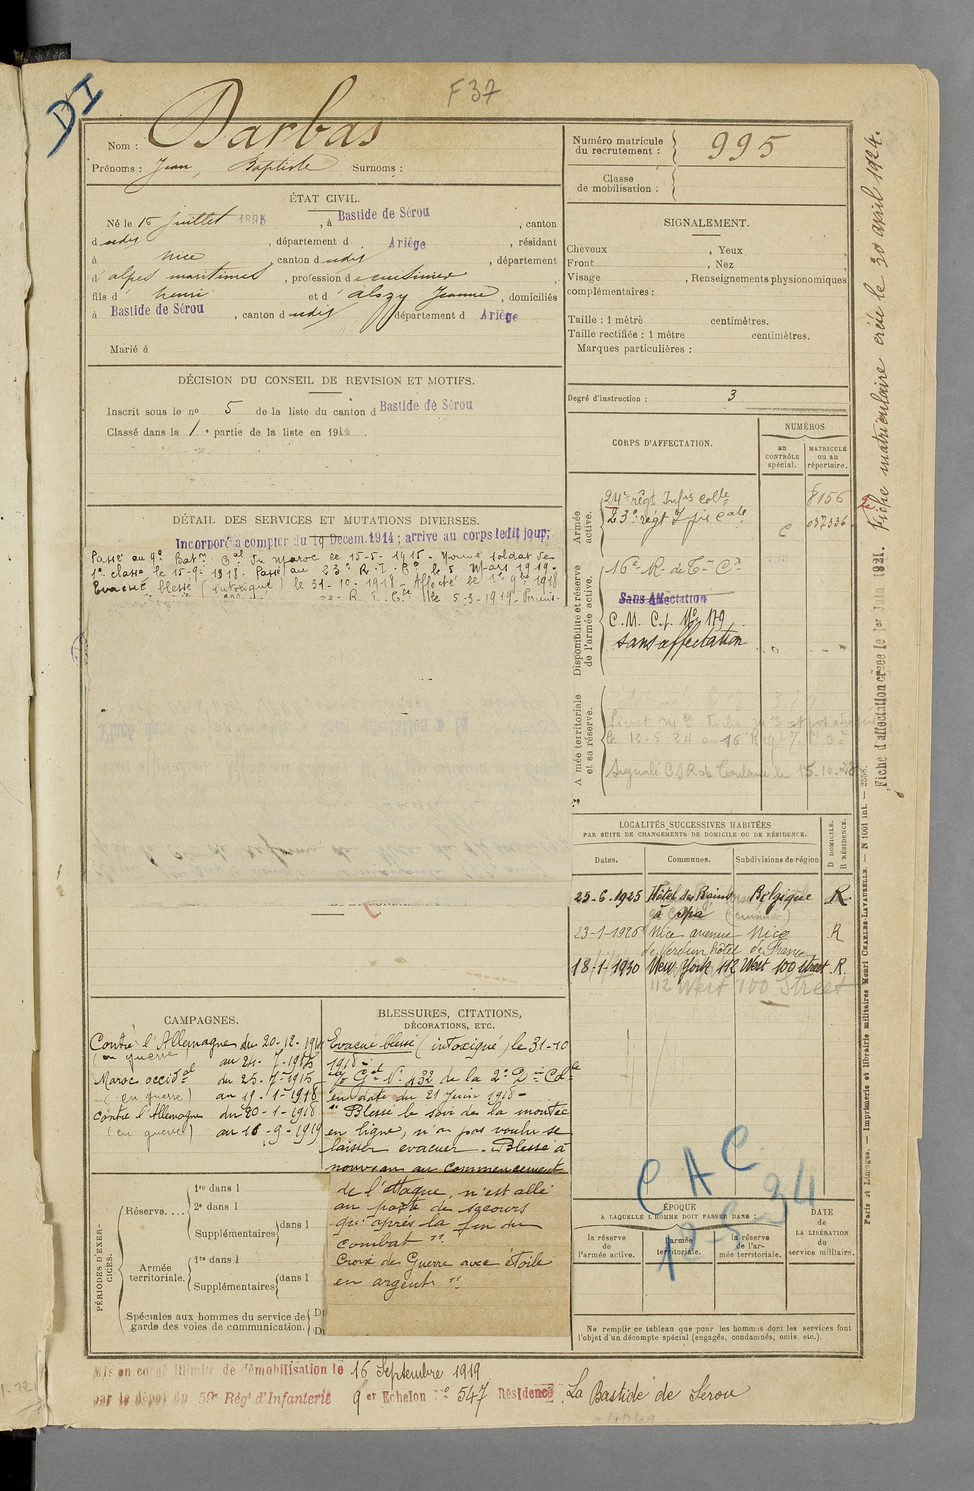 DI
F37
Nom : Darbas
Prénoms : Jean, Baptiste Surnoms :
Numéro matricule du recrutement : 995
Classe de mobilisation :
ÉTAT CIVIL.
Né le 15 Juillet 1895, à Bastide de Sérou, canton
dudit, département d Ariège, résidant
à Nice, canton dudit, département
d'alpes maritimes, profession de cuisinier
fils d' henri et d' Alozy Jeanne, domiciliés
à Bastide de Sérou, canton dudit département d Ariège
Marié à
SIGNALEMENT.
Cheveux , Yeux
Front , Nez
Visage , Renseignements physionomiques
complémentaires :
Taille : 1 mètre centimètres.
Taille rectifiée : 1 mètre centimètres.
Marques particulières :
Degré d'instruction : 3
DÉCISION DU CONSEIL DE REVISION ET MOTIFS.
Inscrit sous le nº 5 de la liste du canton d Bastide de Sérou
Classé dans la 1e partie de la liste en 1914.
DÉTAIL DES SERVICES ET MUTATIONS DIVERSES.
Incorporé à compter du 19 Décem. 1914 ; arrivé au corps ledit jour;
Passé au 9e Baton Cal du Maroc le 15-5-1915. Nommé soldat de
1e classe le 15-9-1918. Passé au 23e R.I.Ce le 5 Mars 1919.
Evacué blessé (intoxiqué) le 31-10-1918
le 5-3-1919
CORPS D'AFFECTATION.
NUMÉROS
au CONTRÔLE spécial.
MATRICULE ou au répertoire.
Armée active.
24e régt Infrie Colle 8156
23e régt Ifrie Cale C 037336
Disponibilité et réserve de l'armée active.
16e R. de T. Cx
Sans Affectation
C.M. C.I. No 179
sans affectation
Armée territoriale et sa réserve.
le 12-5-24 au 16e
15.10.28
LOCALITÉS SUCCESSIVES HABITÉES
PAR SUITE DE CHANGEMENTS DE DOMICILE OU DE RÉSIDENCE.
D DOMICILE.
R RÉSIDENCE.
Dates. Communes. Subdivisions de région
25-6-1925 Hôtel des Bains Belgique R
à Spa
23-1-1926 Nice avenue Nice R
de Verdun hôtel de France
18-1-1930 New York 112 West 100 street R.
112 West 100 Street
CAMPAGNES.
Contre l'Allemagne du 20-12-1914
(en guerre) au 24-7-1915
Maroc occidal du 25-7-1915
(en guerre) au 19-1-1918
Contre l'Allemagne du 20-1-1918
(en guerre) au 16-9-1919
BLESSURES, CITATIONS,
DÉCORATIONS, ETC.
Evacué blessé (intoxiqué) le 31-10
1918 -
Gal No 432 de la 2e Don Colle
en date du 21 Juin 1918 -
" Blessé le soir de la montée
en ligne, n'a pas voulu se
laisser evacuer. Blessé à
nouveau au commencement
de l'attaque, n'est allé
au poste de secours
qu'après la fin du
combat "
Croix de Guerre avec étoile
en argent "
PÉRIODES D'EXERCICES.
Réserve....
1re dans l
2e dans l
Supplémentaires dans l
Armée territoriale.
1re dans l
Supplémentaires dans l
Spéciales aux hommes du service de
garde des voies de communication.
CAC
34
12-5
ÉPOQUE
A LAQUELLE L'HOMME DOIT PASSER DANS :
la réserve de l'armée active.
l'armée territoriale.
la réserve de l'armée territoriale.
DATE
de
LA LIBÉRATION
du
service militaire.
Ne remplir ce tableau que pour les hommes dont les services font
l'objet d'un décompte spécial (engagés, condamnés, omis, etc.).
Mis en congé illimité de démobilisation le 16 Septembre 1919
par le dépôt du 59e Régt d'Infanterie 9er Echelon no 547 Résidence La Bastide de Sérou
Fiche matriculaire créée le 30 avril 1924.
Fiche d'affectation créée le 1er Juin 1921.
Paris et Limoges. — Imprimerie et librairie militaires Henri CHARLES-LAVAUZELLE. — N 1001 int. — 2558.